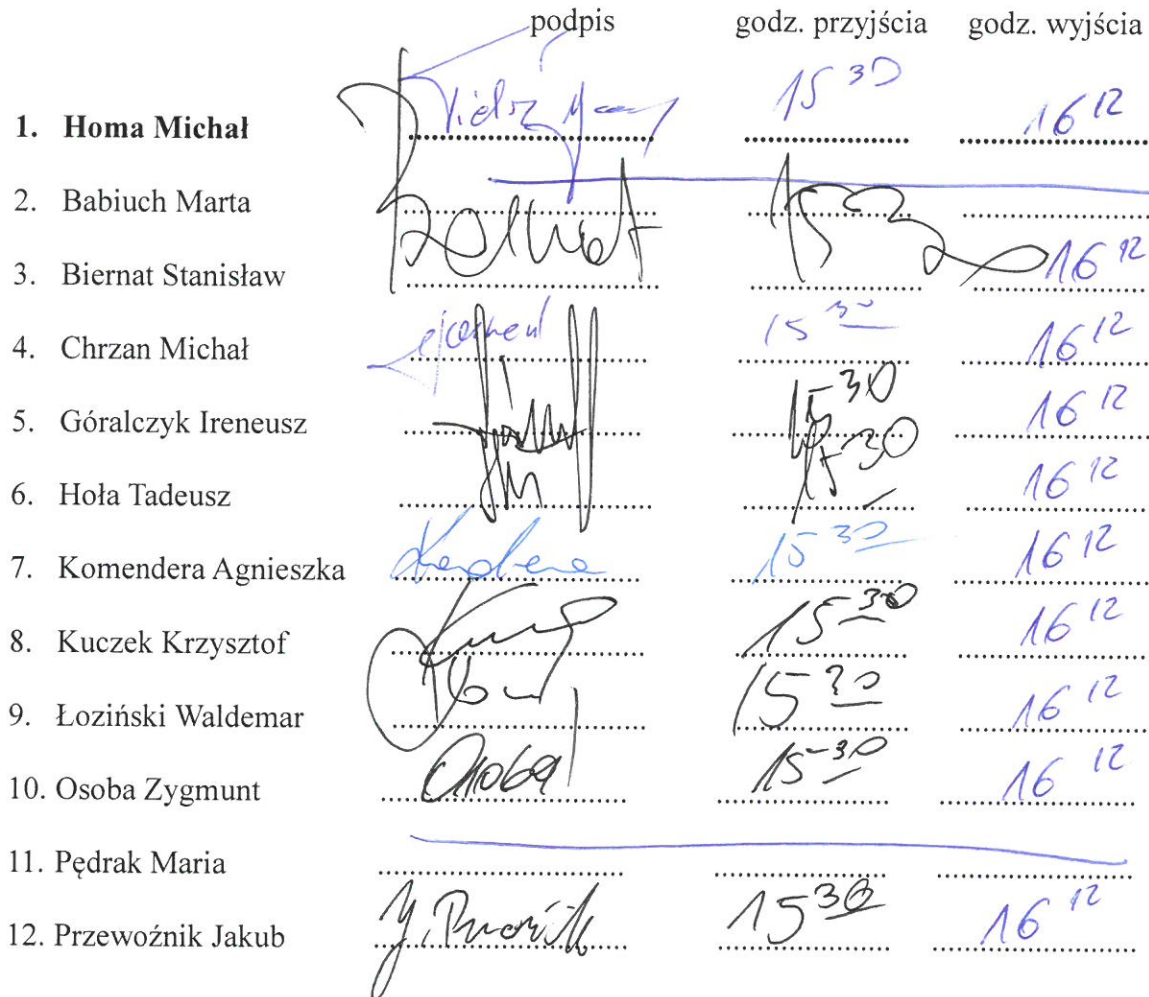 podpis godz. przyjścia godz. wyjścia
1. Homa Michał 15 30 16 12
2. Babiuch Marta
3. Biernat Stanisław 16 12
4. Chrzan Michał 15 30 16 12
5. Góralczyk Ireneusz 15 30 16 12
6. Hoła Tadeusz 15 30 16 12
7. Komendera Agnieszka 15 30 16 12
8. Kuczek Krzysztof 15 30 16 12
9. Łoziński Waldemar 15 30 16 12
10. Osoba Zygmunt 15 30 16 12
11. Pędrak Maria
12. Przewoźnik Jakub 15 30 16 12